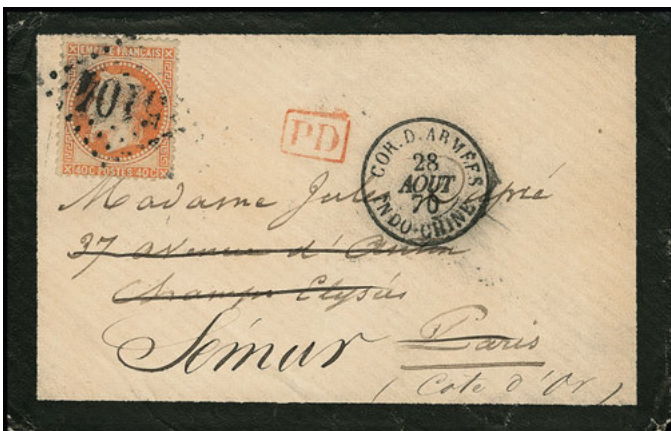 EMPIRE FRANÇAIS
40C POSTES 40C
PD
COR. D. ARMÉES
28
AOUT
70
INDO-CHINE
Madame Jules
37 avenue d'Antin
Champs Elysées
Sémur Paris
(Côte d'Or)